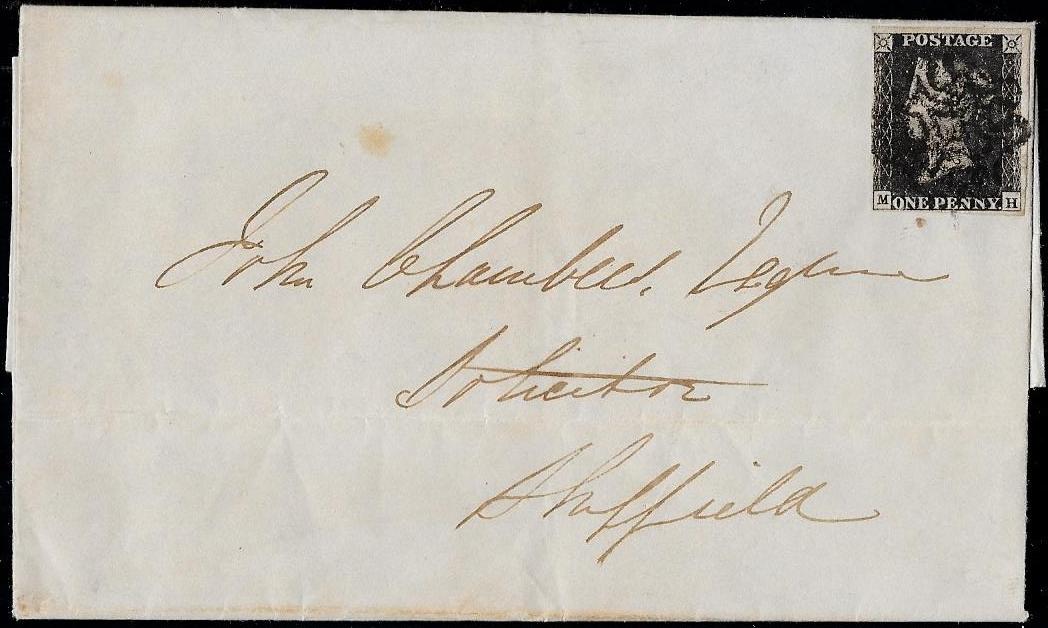 POSTAGE
M ONE PENNY. H
John Chambers, Esquire
Solicitor
Sheffield